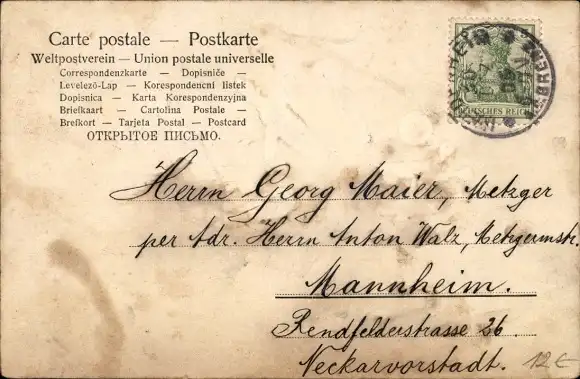 Carte postale — Postkarte
Weltpostverein — Union postale universelle
Correspondenzkarte — Dopisniče —
Levelező-Lap — Korespondencni listek
Dopisnica — Karta Korespondenzyjna
Briefkaart — Cartolina Postale —
Brefkort — Tarjeta Postal — Postcard
ОТКРЫТОЕ ПИСЬМО.
DEUTSCHES REICH
Herrn Georg Maier, Metzger
per Adr. Herrn Anton Walz, Metzgermstr.
Mannheim.
Rendfelderstrasse 26.
Neckarvorstadt.
12€